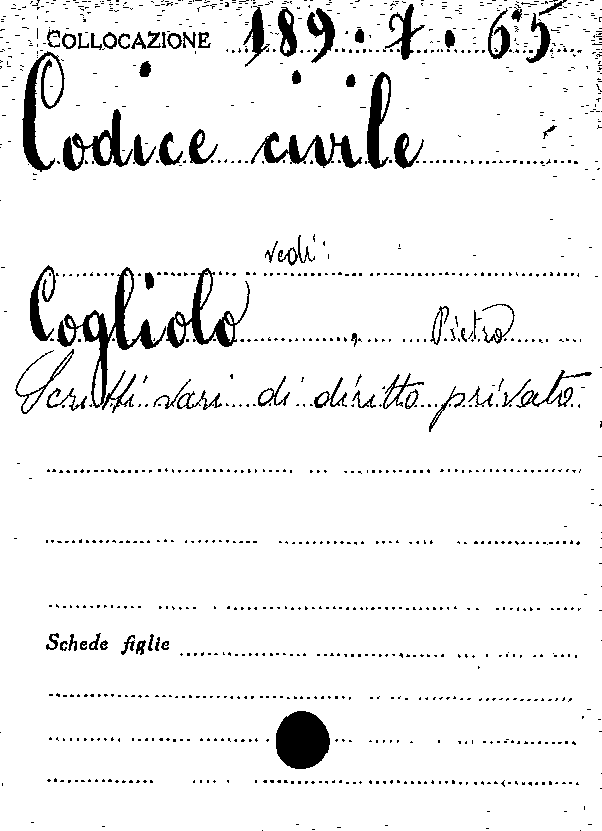 COLLOCAZIONE 189.7.65
Codice civile
vedi:
Cogliolo, Pietro
Scritti vari di diritto privato
Schede figlie